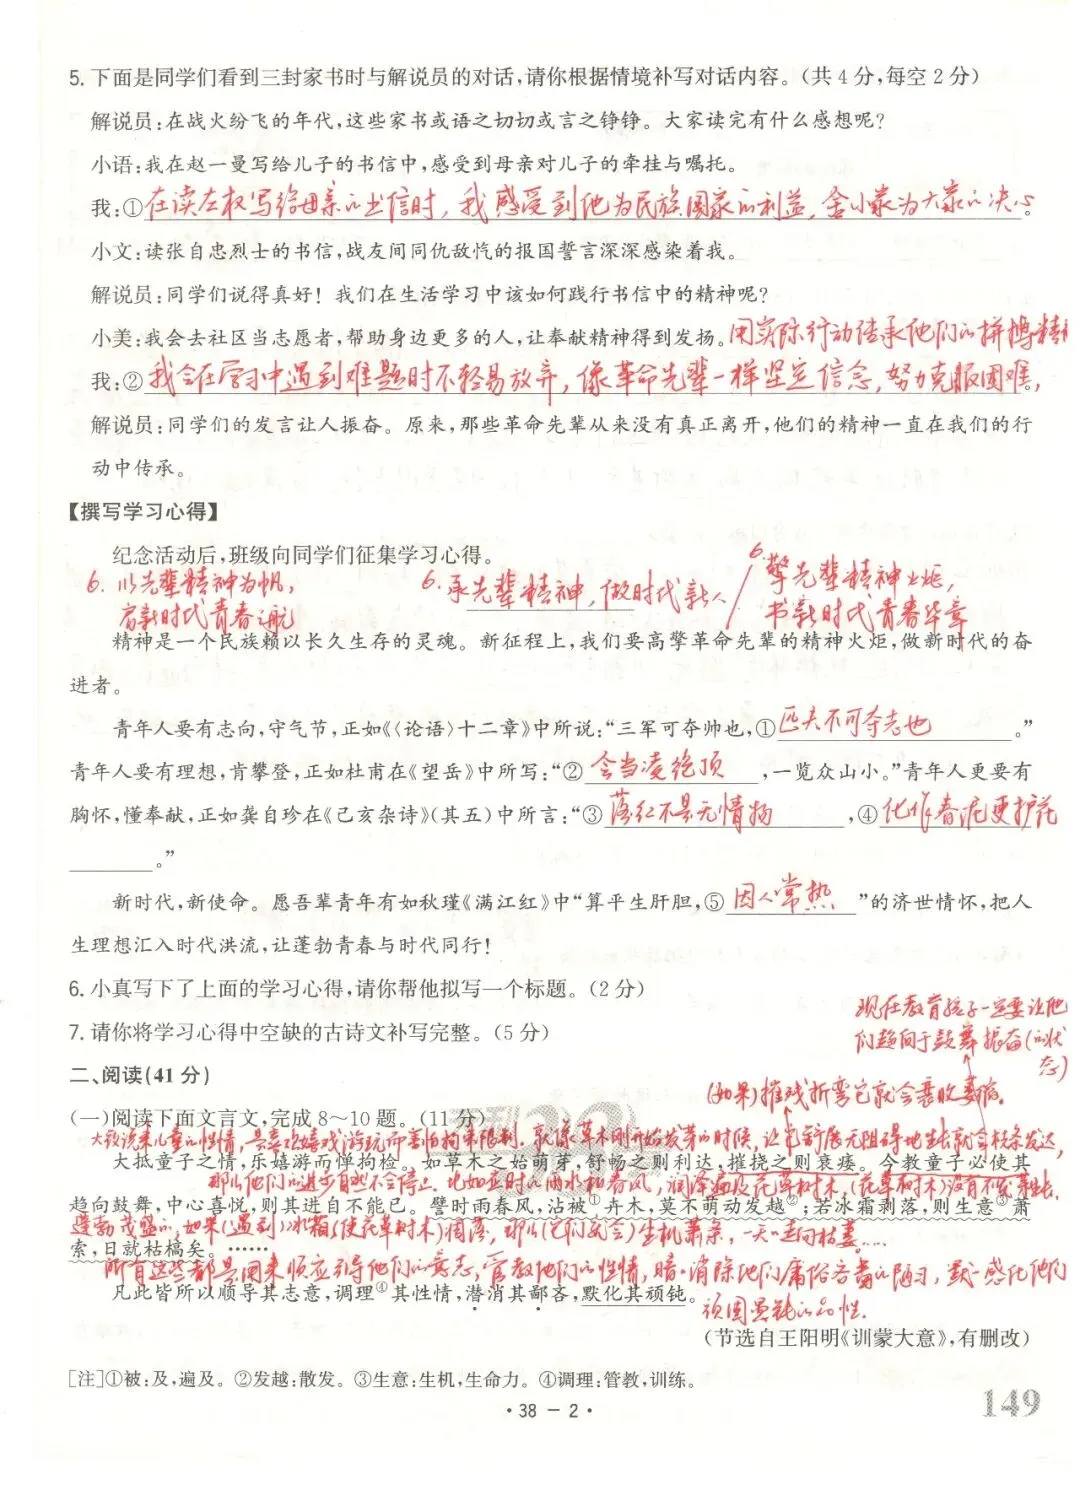 5. 下面是同学们看到三封家书时与解说员的对话,请你根据情境补写对话内容。(共 4 分,每空 2 分)
解说员:在战火纷飞的年代,这些家书或语之切切或言之铮铮。大家读完有什么感想呢?
小语:我在赵一曼写给儿子的书信中,感受到母亲对儿子的牵挂与嘱托。
我:①在读左权写给母亲的书信时,我感受到他为民族国家的利益,舍小家为大家的决心。
小文:读张自忠烈士的书信,战友间同仇敌忾的报国誓言深深感染着我。
解说员:同学们说得真好! 我们在生活学习中该如何践行书信中的精神呢?
小美:我会去社区当志愿者,帮助身边更多的人,让奉献精神得到发扬。
用实际行动传承他们的拼搏精神
我:②我会在学习中遇到难题时不轻易放弃,像革命先辈一样坚定信念,努力克服困难,
解说员:同学们的发言让人振奋。原来,那些革命先辈从来没有真正离开,他们的精神一直在我们的行
动中传承。
【撰写学习心得】
纪念活动后,班级向同学们征集学习心得。
6. 以先辈精神为帆,
启新时代青春之航
6. 承先辈精神,做时代新人
6. 擎先辈精神火炬,
书新时代青春华章
精神是一个民族赖以长久生存的灵魂。新征程上,我们要高擎革命先辈的精神火炬,做新时代的奋
进者。
青年人要有志向,守气节,正如《〈论语〉十二章》中所说:“三军可夺帅也,①匹夫不可夺志也。”
青年人要有理想,肯攀登,正如杜甫在《望岳》中所写:“②会当凌绝顶,一览众山小。”青年人更要有
胸怀,懂奉献,正如龚自珍在《己亥杂诗》(其五)中所言:“③落红不是无情物,④化作春泥更护花
。”
新时代,新使命。愿吾辈青年有如秋瑾《满江红》中“算平生肝胆,⑤因人常热”的济世情怀,把人
生理想汇入时代洪流,让蓬勃青春与时代同行!
6. 小真写下了上面的学习心得,请你帮他拟写一个标题。(2 分)
7. 请你将学习心得中空缺的古诗文补写完整。(5 分)
现在教育孩子一定要让他
们趋向于鼓舞振奋(的状
态)
二、阅读(41 分)
(如果)摧残折弯它就会衰败萎痿。
(一)阅读下面文言文,完成 8～10 题。(11 分)
大致说来儿童的性情,喜欢嬉戏游玩而害怕拘束限制。就像草木刚开始发芽的时候,让它舒展无阻碍地生长就会枝条发达,
大抵童子之情,乐嬉游而惮拘检。如草木之始萌芽,舒畅之则利达,摧挠之则衰痿。今教童子必使其
那么他们的进步自然不会停止。比如及时的雨水和春风,润泽遍及花草树木,(花草树木)没有不萌芽生长,
趋向鼓舞,中心喜悦,则其进自不能已。譬时雨春风,沾被①卉木,莫不萌动发越②;若冰霜剥落,则生意③萧
蓬勃茂盛的,如果(遇到)冰霜(使花草树木)凋落,那么(它们就会)生机萧条,一天天走向枯萎……
索,日就枯槁矣。……
所有这些都是用来顺应引导他们的意志,管教他们的性情,暗暗消除他们庸俗吝啬的陋习,默默感化他们
凡此皆所以顺导其志意,调理④其性情,潜消其鄙吝,默化其顽钝。
顽固愚钝的品性.
(节选自王阳明《训蒙大意》,有删改)
[注]①被:及,遍及。②发越:散发。③生意:生机,生命力。④调理:管教,训练。
· 38 - 2 ·
149